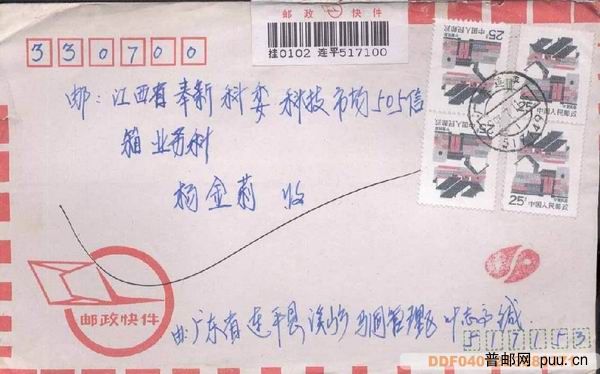 邮政快件
挂0102 连平517100
330700
邮:江西省奉新科委科技市场505信
箱业务科
杨金莉 收
25分
中国人民邮政
25分
中国人民邮政
25分
中国人民邮政
25分
中国人民邮政
邮政快件
邮:广东省连平县溪山乡 管理区叶志
517153
DDF040
普邮网 puu.cn